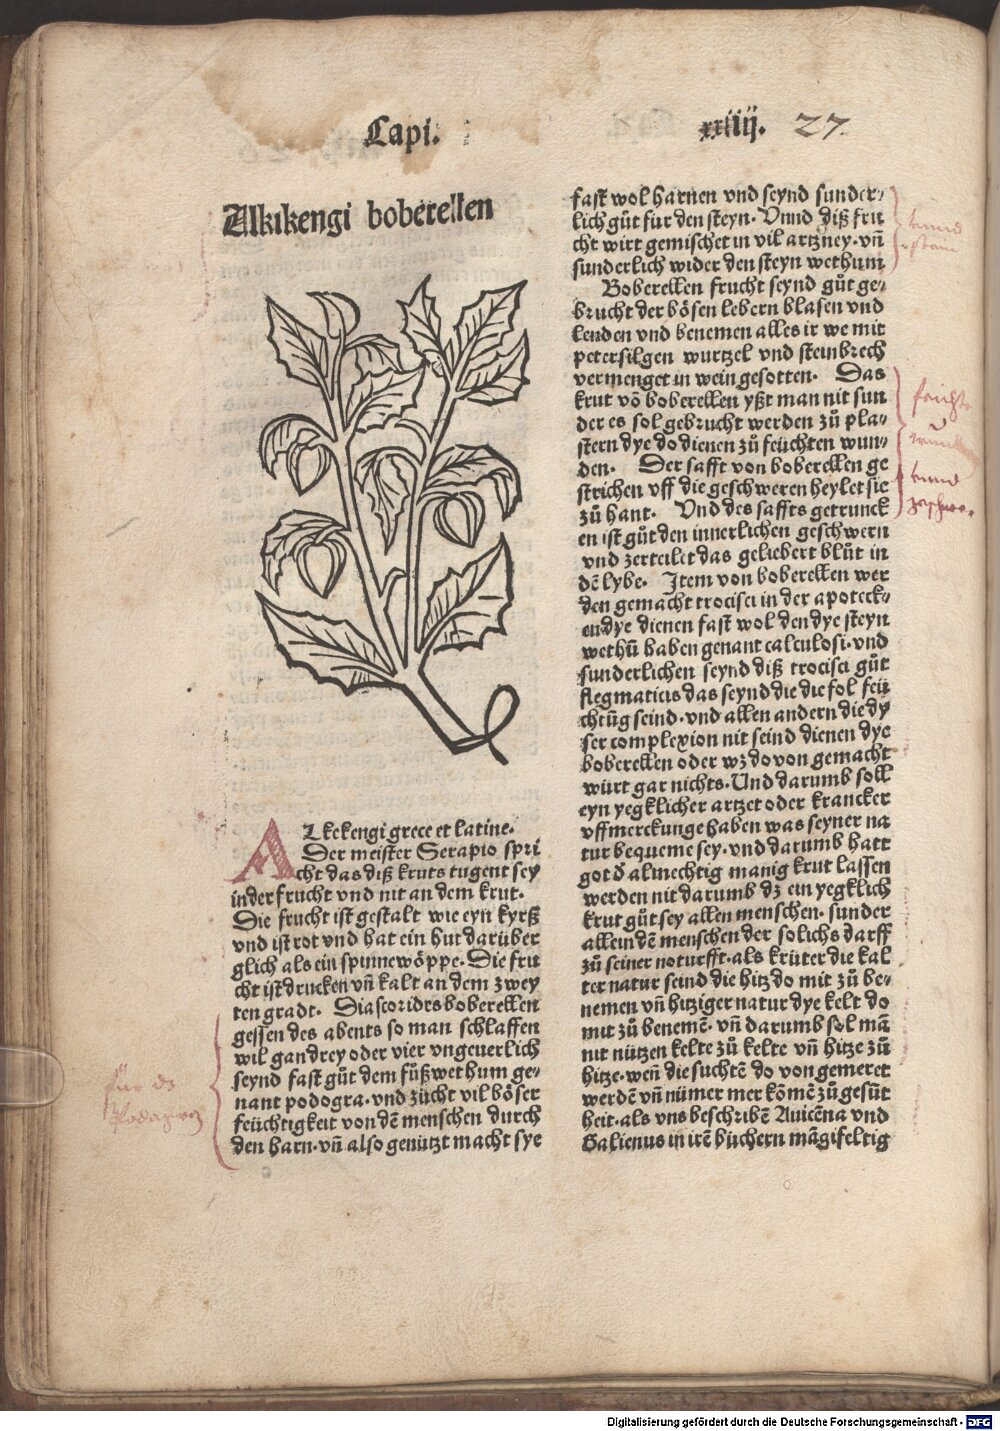 Capi.
xxiiij. 27.
Alkikengi boberellen
ALkekengi grece et latine.
Der meister Serapio spri
cht das diß kruts tugent sey
in der frucht vnd nit an dem krut.
Die frucht ist gestalt wie eyn kyrß
vnd ist rot vnd hat ein hut darüber
glich als ein spinnewöppe. Die fru
cht ist drucken vñ kalt an dem zwey
ten gradt. Diascorides boberellen
gessen des abents so man schlaffen
wil gan drey oder vier vngeuerlich
seynd fast gůt dem fůß wethum ge-
nant podogra. vnd zücht vil böser
feüchtigkeit von dē menschen durch
den harn. vñ also genützt macht sye
fast wol harnen vnd seynd sunder-
lich gůt fur den steyn. Vnnd diß fru
cht wirt gemischet in vil artzney. vñ
sunderlich wider den steyn wethum
Boberellen frucht seynd gůt ge-
brucht der bösen lebern blasen vnd
lenden vnd benemen alles ir we mit
petersilgen wurtzel vnd steinbrech
vermenget in wein gesotten. Das
krut vō boberellen yßt man nit sun
der es sol gebrucht werden zů pla-
stern dye do dienen zů feüchten wun-
den. Der safft von boberellen ge
strichen vff die geschweren heylet sie
zů hant. Vnd des saffts getrunck
en ist gůt den innerlichen geschwern
vnd zerteilet das geliebert blůt in
dē lybe. Item von boberellen wer
den gemacht trocisci in der apoteck-
en dye dienen fast wol den dye steyn
wethū haben genant calculosi. vnd
sunderlichen seynd diß trocisci gůt
flegmaticis das seynd die die fol feü
chtūg seind. vnd allen andern die dy
ser complexion nit seind dienen dye
boberellen oder wz do von gemacht
würt gar nichts. Und darumb soll
eyn yegklicher artzet oder krancker
vffmerckunge haben was seyner na
tur bequeme sey. vnd darumb hatt
got d almechtig manig krut lassen
werden nit darumb dz ein yegklich
krut gůt sey allen menschen. sunder
allein dē menschen der solichs darff
zů seiner noturfft. als krüter die kal
ter natur seind die hitz do mit zů be-
nemen vñ hitziger natur dye kelt do
mit zů benemē. vñ darumb sol mā
nit nützen kelte zů kelte vñ hitze zů
hitze. weñ die suchtē do von gemeret
werdē vñ nümer mer kōmē zů gesūt
heit. als vns beschribē Auicēna vnd
Galienus in irē büchern māgifeltig
für dz
Podagra
Digitalisierung gefördert durch die Deutsche Forschungsgemeinschaft - DFG